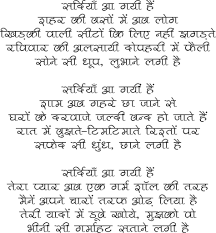 सर्दियाँ आ गयीं हैं
शहर की बसों में अब लोग
खिड़की वाली सीटों कि लिए नहीं झगड़ते
रविवार की अलसायी दोपहरी में फैली
सोने सी धूप, लुभाने लगी है
सर्दियाँ आ गयीं हैं
शाम अब गहरे छा जाने से
घरों के दरवाजे जल्दी बन्द हो जाते हैं
रात में बुझते-टिमटिमाते रिश्तों पर
सफेद सी धुंध, छाने लगी है
सर्दियाँ आ गयीं हैं
तेरा प्यार अब एक गर्म शॉल की तरह
मैंने अपने चारों तरफ ओढ़ लिया है
तेरी यादों में डूबे खोये, मुझको वो
भीनी सी गर्माहट सताने लगी है